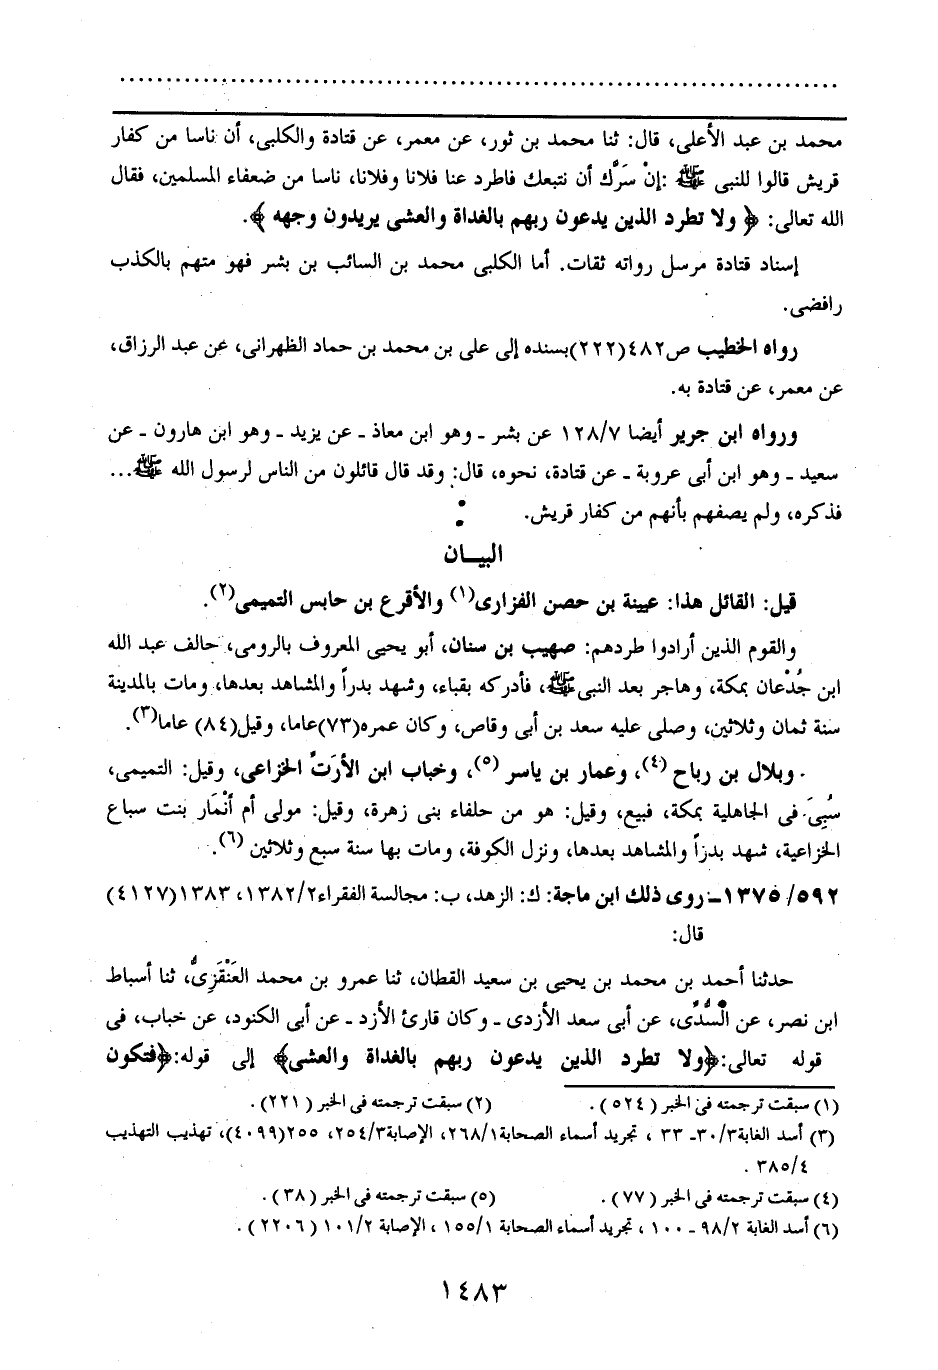 محمد بن عبد الأعلى، قال: ثنا محمد بن ثور، عن معمر، عن قتادة والكلبى، أن ناسا من كفار
قريش قالوا للنبى ﷺ :إنْ سَرَّك أن نتبعك فاطرد عنا فلانا وفلانا، ناسا من ضعفاء المسلمين، فقال
الله تعالى: ﴿ ولا تطرد الذين يدعون ربهم بالغداة والعشى يريدون وجهه ﴾.
إسناد قتادة مرسل رواته ثقات. أما الكلبى محمد بن السائب بن بشر فهو متهم بالكذب
رافضى.
رواه الخطيب ص٤٨٢(٢٢٢)بسنده إلى على بن محمد بن حماد الظهرانى، عن عبد الرزاق،
عن معمر، عن قتادة به.
ورواه ابن جرير أيضا ١٢٨/٧ عن بشر ـ وهو ابن معاذ ـ عن يزيد ـ وهو ابن هارون ـ عن
سعيد ـ وهو ابن أبى عروبة ـ عن قتادة، نحوه، قال: وقد قال قائلون من الناس لرسول الله ﷺ...
فذكره، ولم يصفهم بأنهم من كفار قريش.
البيـــان
قيل: القائل هذا: عيينة بن حصن الفزارى(١) والأقرع بن حابس التميمى(٢).
والقوم الذين أرادوا طردهم: صهيب بن سنان، أبو يحيى المعروف بالرومى، حالف عبد الله
ابن جُدْعان بمكة، وهاجر بعد النبىﷺ، فأدركه بقباء، وشهد بدراً والمشاهد بعدها، ومات بالمدينة
سنة ثمان وثلاثين، وصلى عليه سعد بن أبى وقاص، وكان عمره(٧٣)عاما، وقيل(٨٤) عاما(٣).
وبلال بن رباح (٤)، وعمار بن ياسر (٥)، وخباب ابن الأرَتّ الخزاعى، وقيل: التميمى،
سُبِىَ فى الجاهلية بمكة، فبيع، وقيل: هو من حلفاء بنى زهرة، وقيل: مولى أم أنْمَار بنت سباع
الخزاعية، شهد بدرًا والمشاهد بعدها، ونزل الكوفة، ومات بها سنة سبع وثلاثين (٦).
١٣٧٥/٥٩٢ـ روى ذلك ابن ماجة: ك: الزهد، ب: مجالسة الفقراء١٣٨٢/٢، ١٣٨٣(٤١٢٧)
قال:
حدثنا أحمد بن محمد بن يحيى بن سعيد القطان، ثنا عمرو بن محمد العَنْقَزِىُّ، ثنا أسباط
ابن نصر، عن السُّدِّى، عن أبى سعد الأزدى ـ وكان قارئ الأزد ـ عن أبى الكنود، عن خباب، فى
قوله تعالى:﴿ولا تطرد الذين يدعون ربهم بالغداة والعشى﴾ إلى قوله:﴿فتكون
(١) سبقت ترجمته فى الخبر ( ٥٢٤) . (٢) سبقت ترجمته فى الخبر ( ٢٢١) .
(٣) أسد الغابة٣٠/٣ـ ٣٣ ، تجريد أسماء الصحابة٢٦٨/١، الإصابة٢٥٤/٣، ٢٥٥(٤٠٩٩)، تهذيب التهذيب
٣٨٥/٤ .
(٤) سبقت ترجمته فى الخبر ( ٧٧) . (٥) سبقت ترجمته فى الخبر ( ٣٨) .
(٦) أسد الغابة ٩٨/٢ ـ ١٠٠ ، تجريد أسماء الصحابة ١٥٥/١ ، الإصابة ١٠١/٢ (٢٢٠٦) .
١٤٨٣